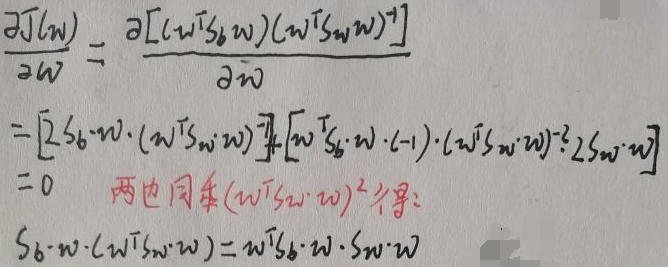 ∂J(w)/∂w = ∂[(wᵀS_b w)(wᵀS_w w)⁻¹]/∂w
= [2S_b·w·(wᵀS_w·w)⁻¹] + [wᵀS_b·w·(-1)·(wᵀS_w·w)⁻²·2S_w·w]
= 0 两边同乘(wᵀS_w·w)²得:
S_b·w·(wᵀS_w·w) = wᵀS_b·w·S_w·w